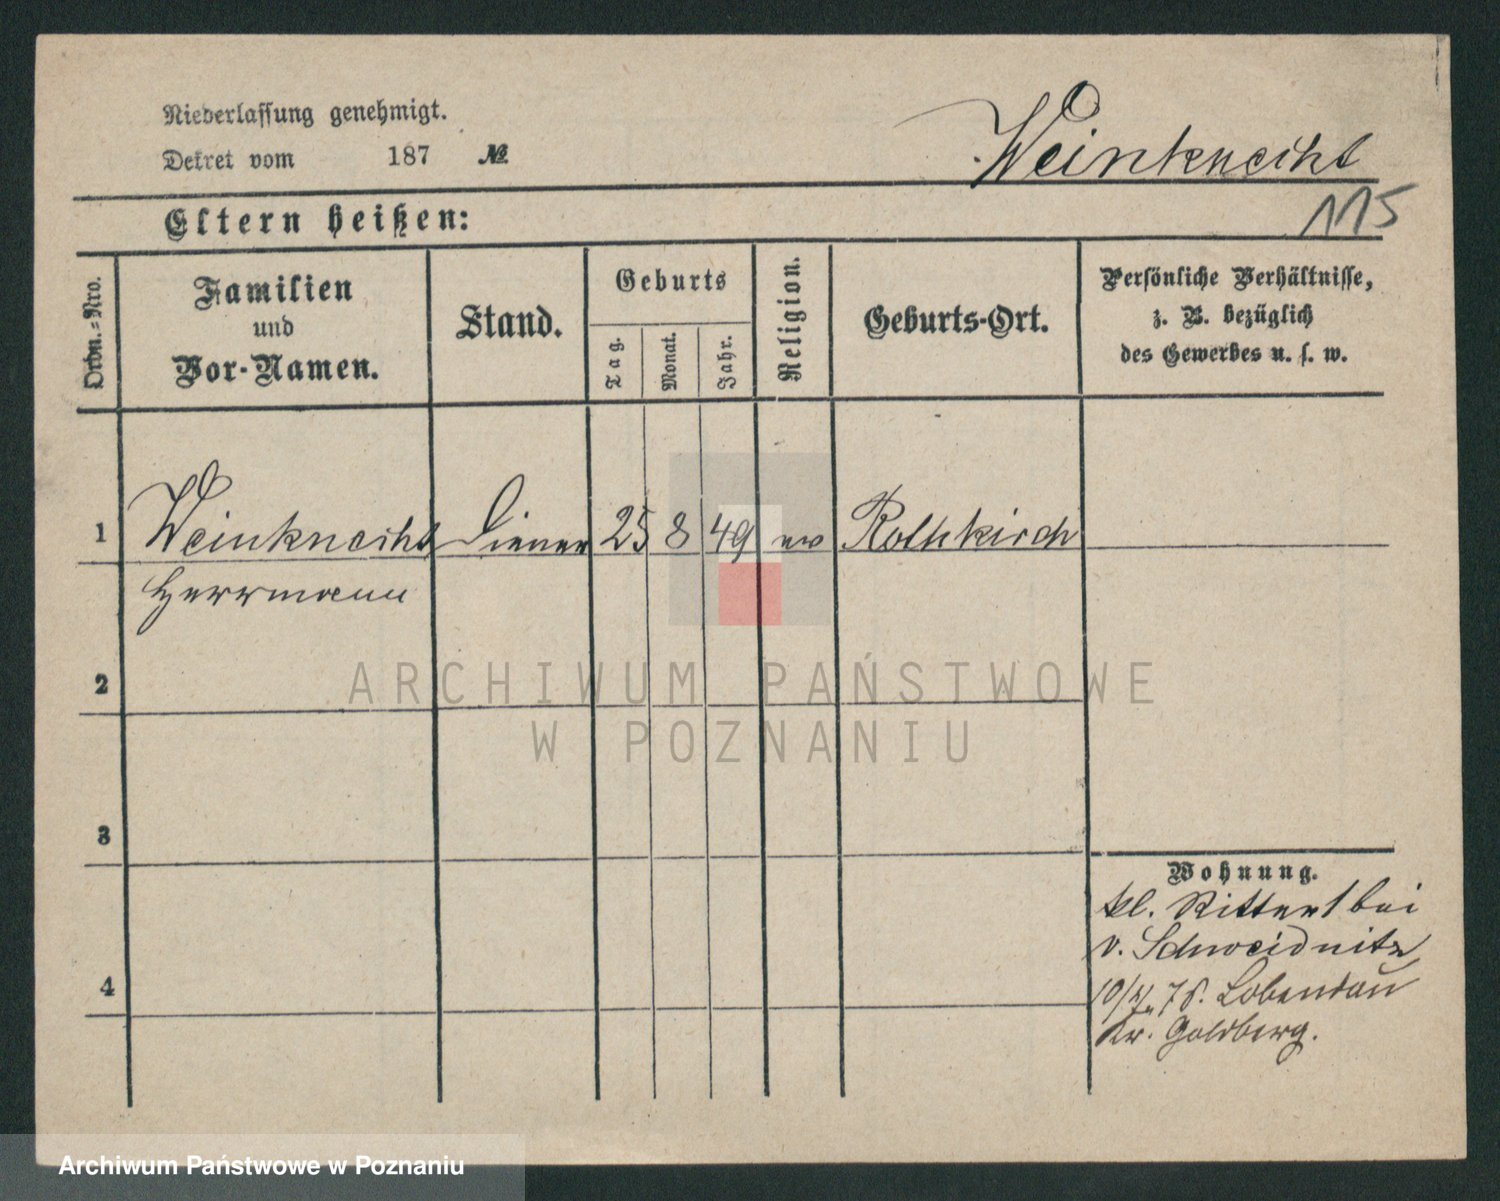 Niederlassung genehmigt.
Dekret vom 187 №
Weinknecht
115
Eltern heißen:
Ordn.-Nro.
Familien und Vor-Namen.
Stand.
Geburts
Tag.
Monat.
Jahr.
Religion.
Geburts-Ort.
Persönliche Verhältnisse,
z. B. bezüglich
des Gewerbes u. s. w.
1 Weinknecht Diener 25 8 49 ev Rothkirch
Herrmann
2
ARCHIWUM PAŃSTWOWE
W POZNANIU
3
Wohnung.
kl. Ritterst bei
v. Schweidnitz
4
Lobendau
Kr. Goldberg.
Archiwum Państwowe w Poznaniu